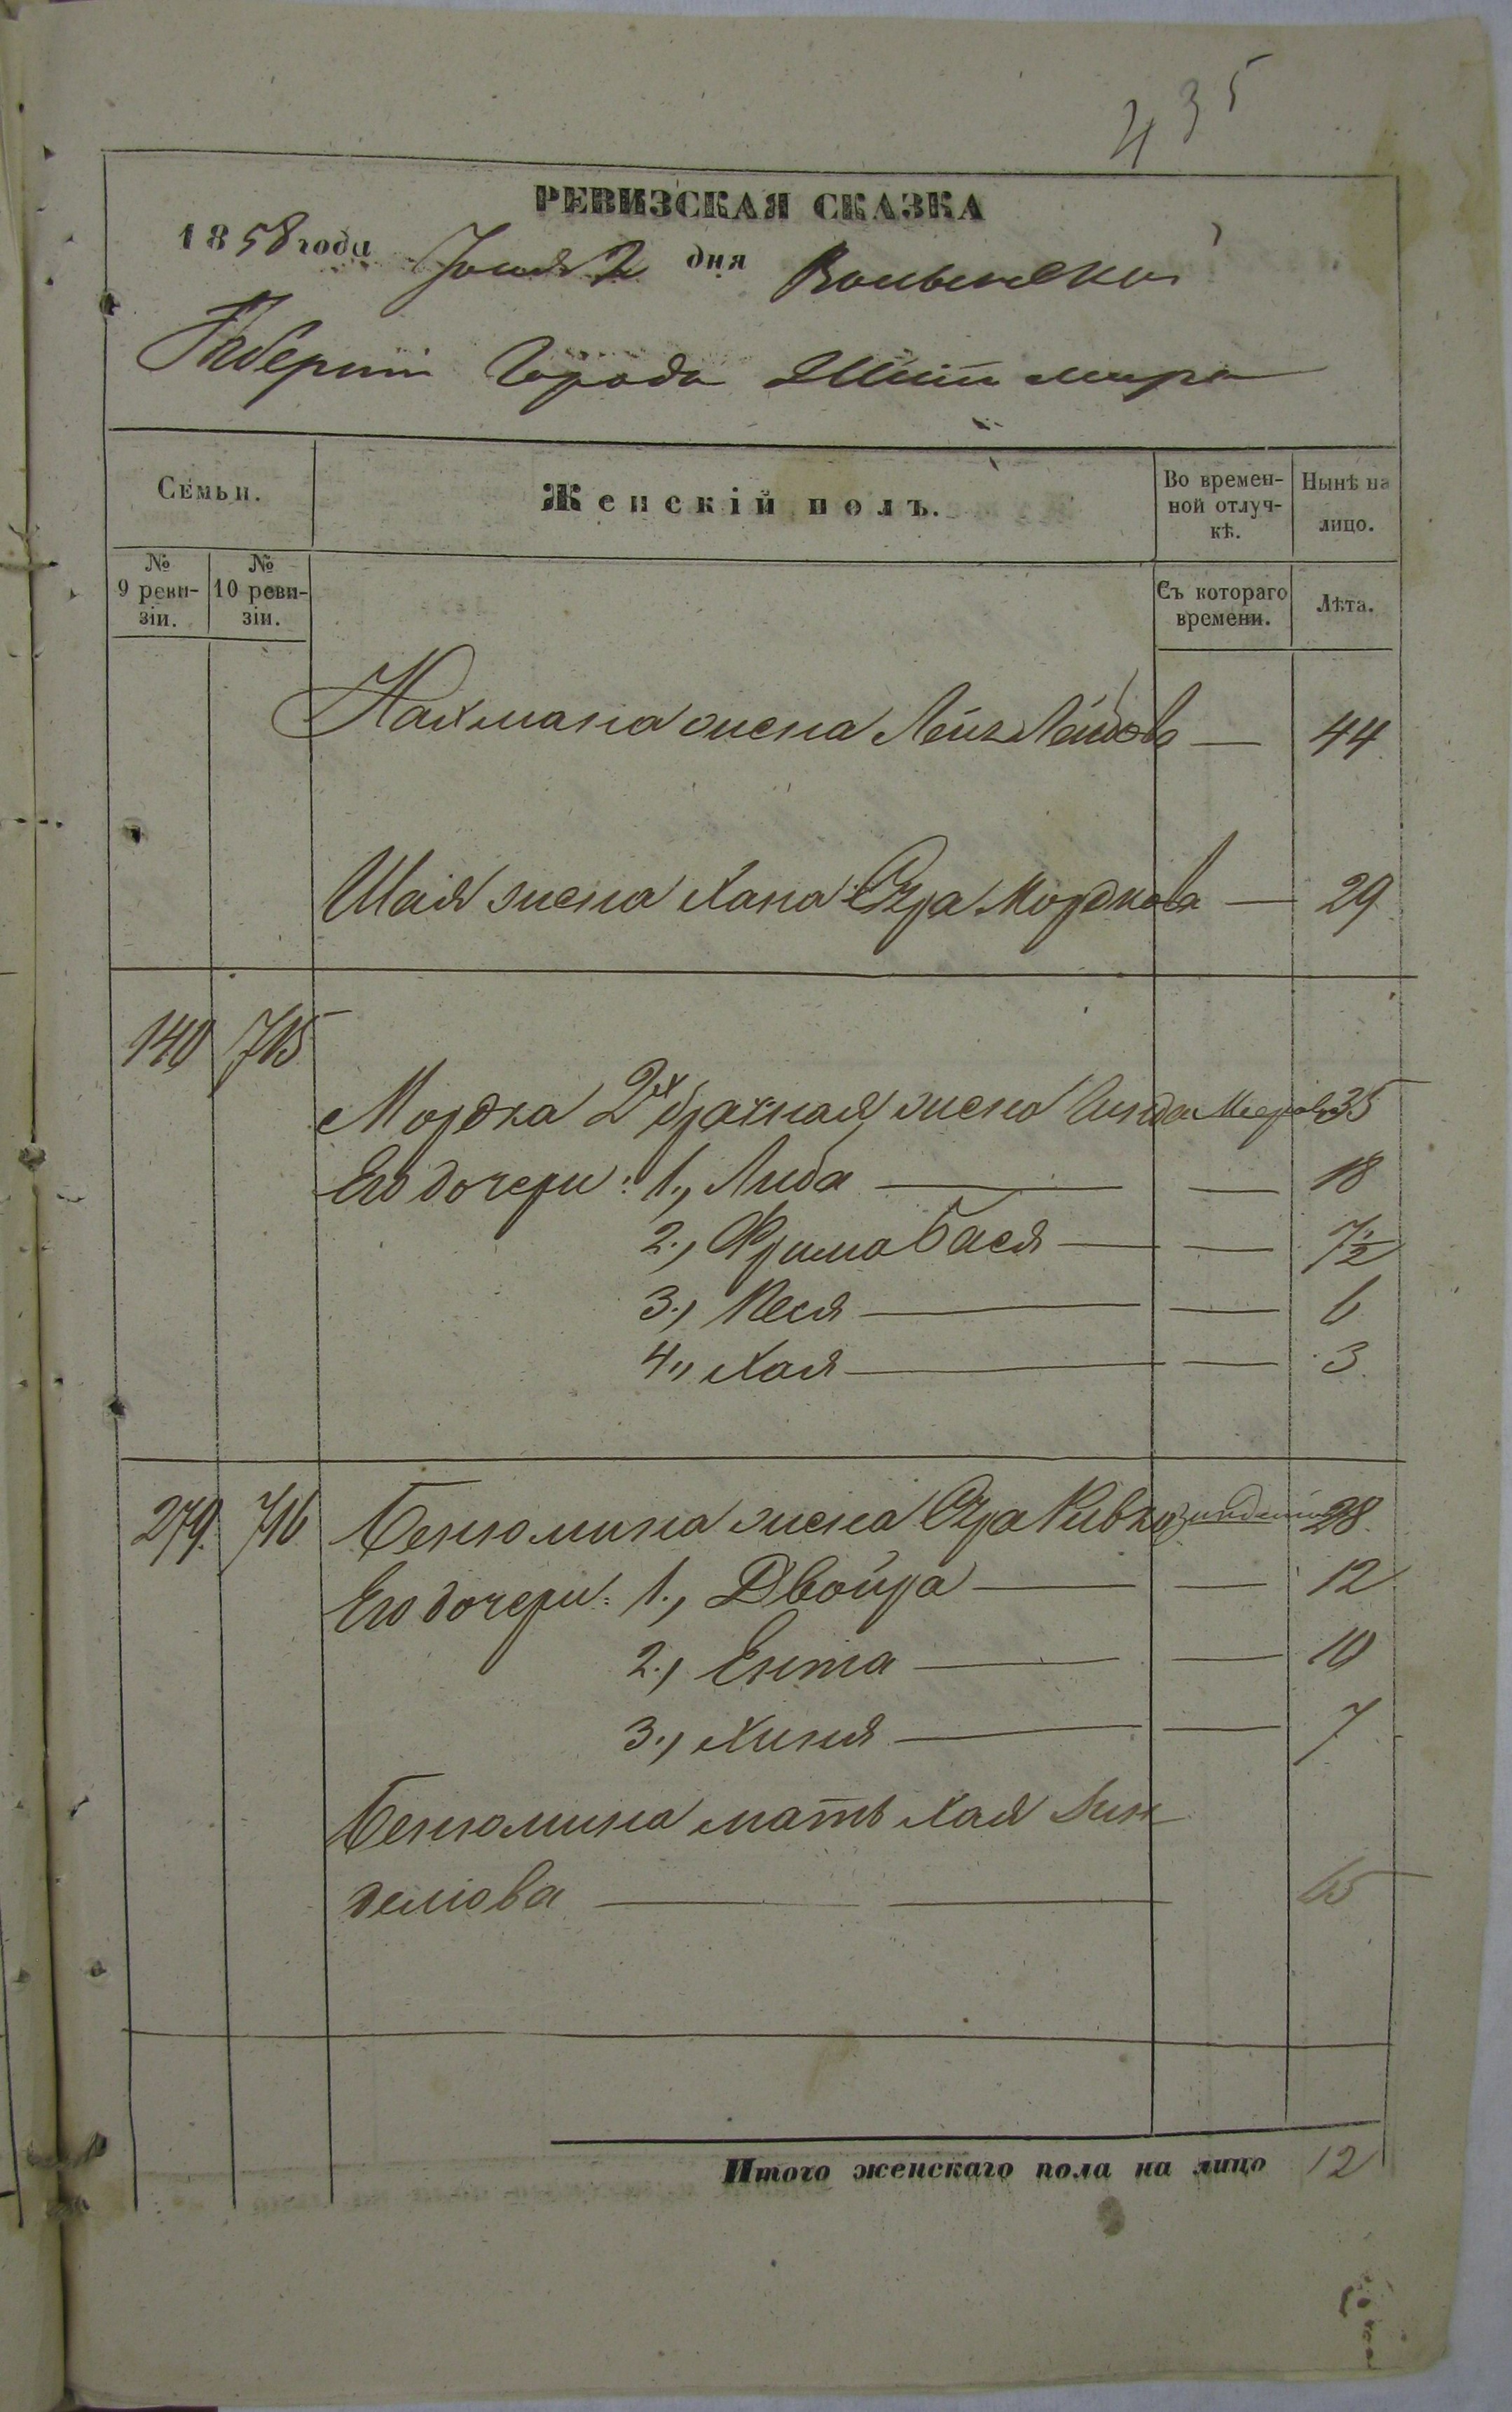 435
РЕВИЗСКАЯ СКАЗКА
1858 года Іюня 2 дня Волынской
Губерніи Города Житомира
Семьи.
Женскій полъ.
Во времен-
ной отлуч-
кѣ.
Нынѣ на
лицо.
№
9 реви-
зіи.
№
10 реви-
зіи.
Съ котораго
времени.
Лѣта.
Нахмана жена Лейбова — 44
Шая жена Хана Сура Мордкова — 29
140 715
Мордка 2х брачная жена Меерова 35
Его дочери: 1., Либа — — 18
2., Фрима Бася — — 7½
3., Песя — — 6
4., Хая — — 3
279. 716 Бенюмина жена Сура Ривка 28.
Его дочери: 1., Двойра — — 12
2., Ента — — 10
3., Хиня — — 7
Бенюмина мать Хая Зин
делiова — — 65
Итого женскаго пола на лицо 12